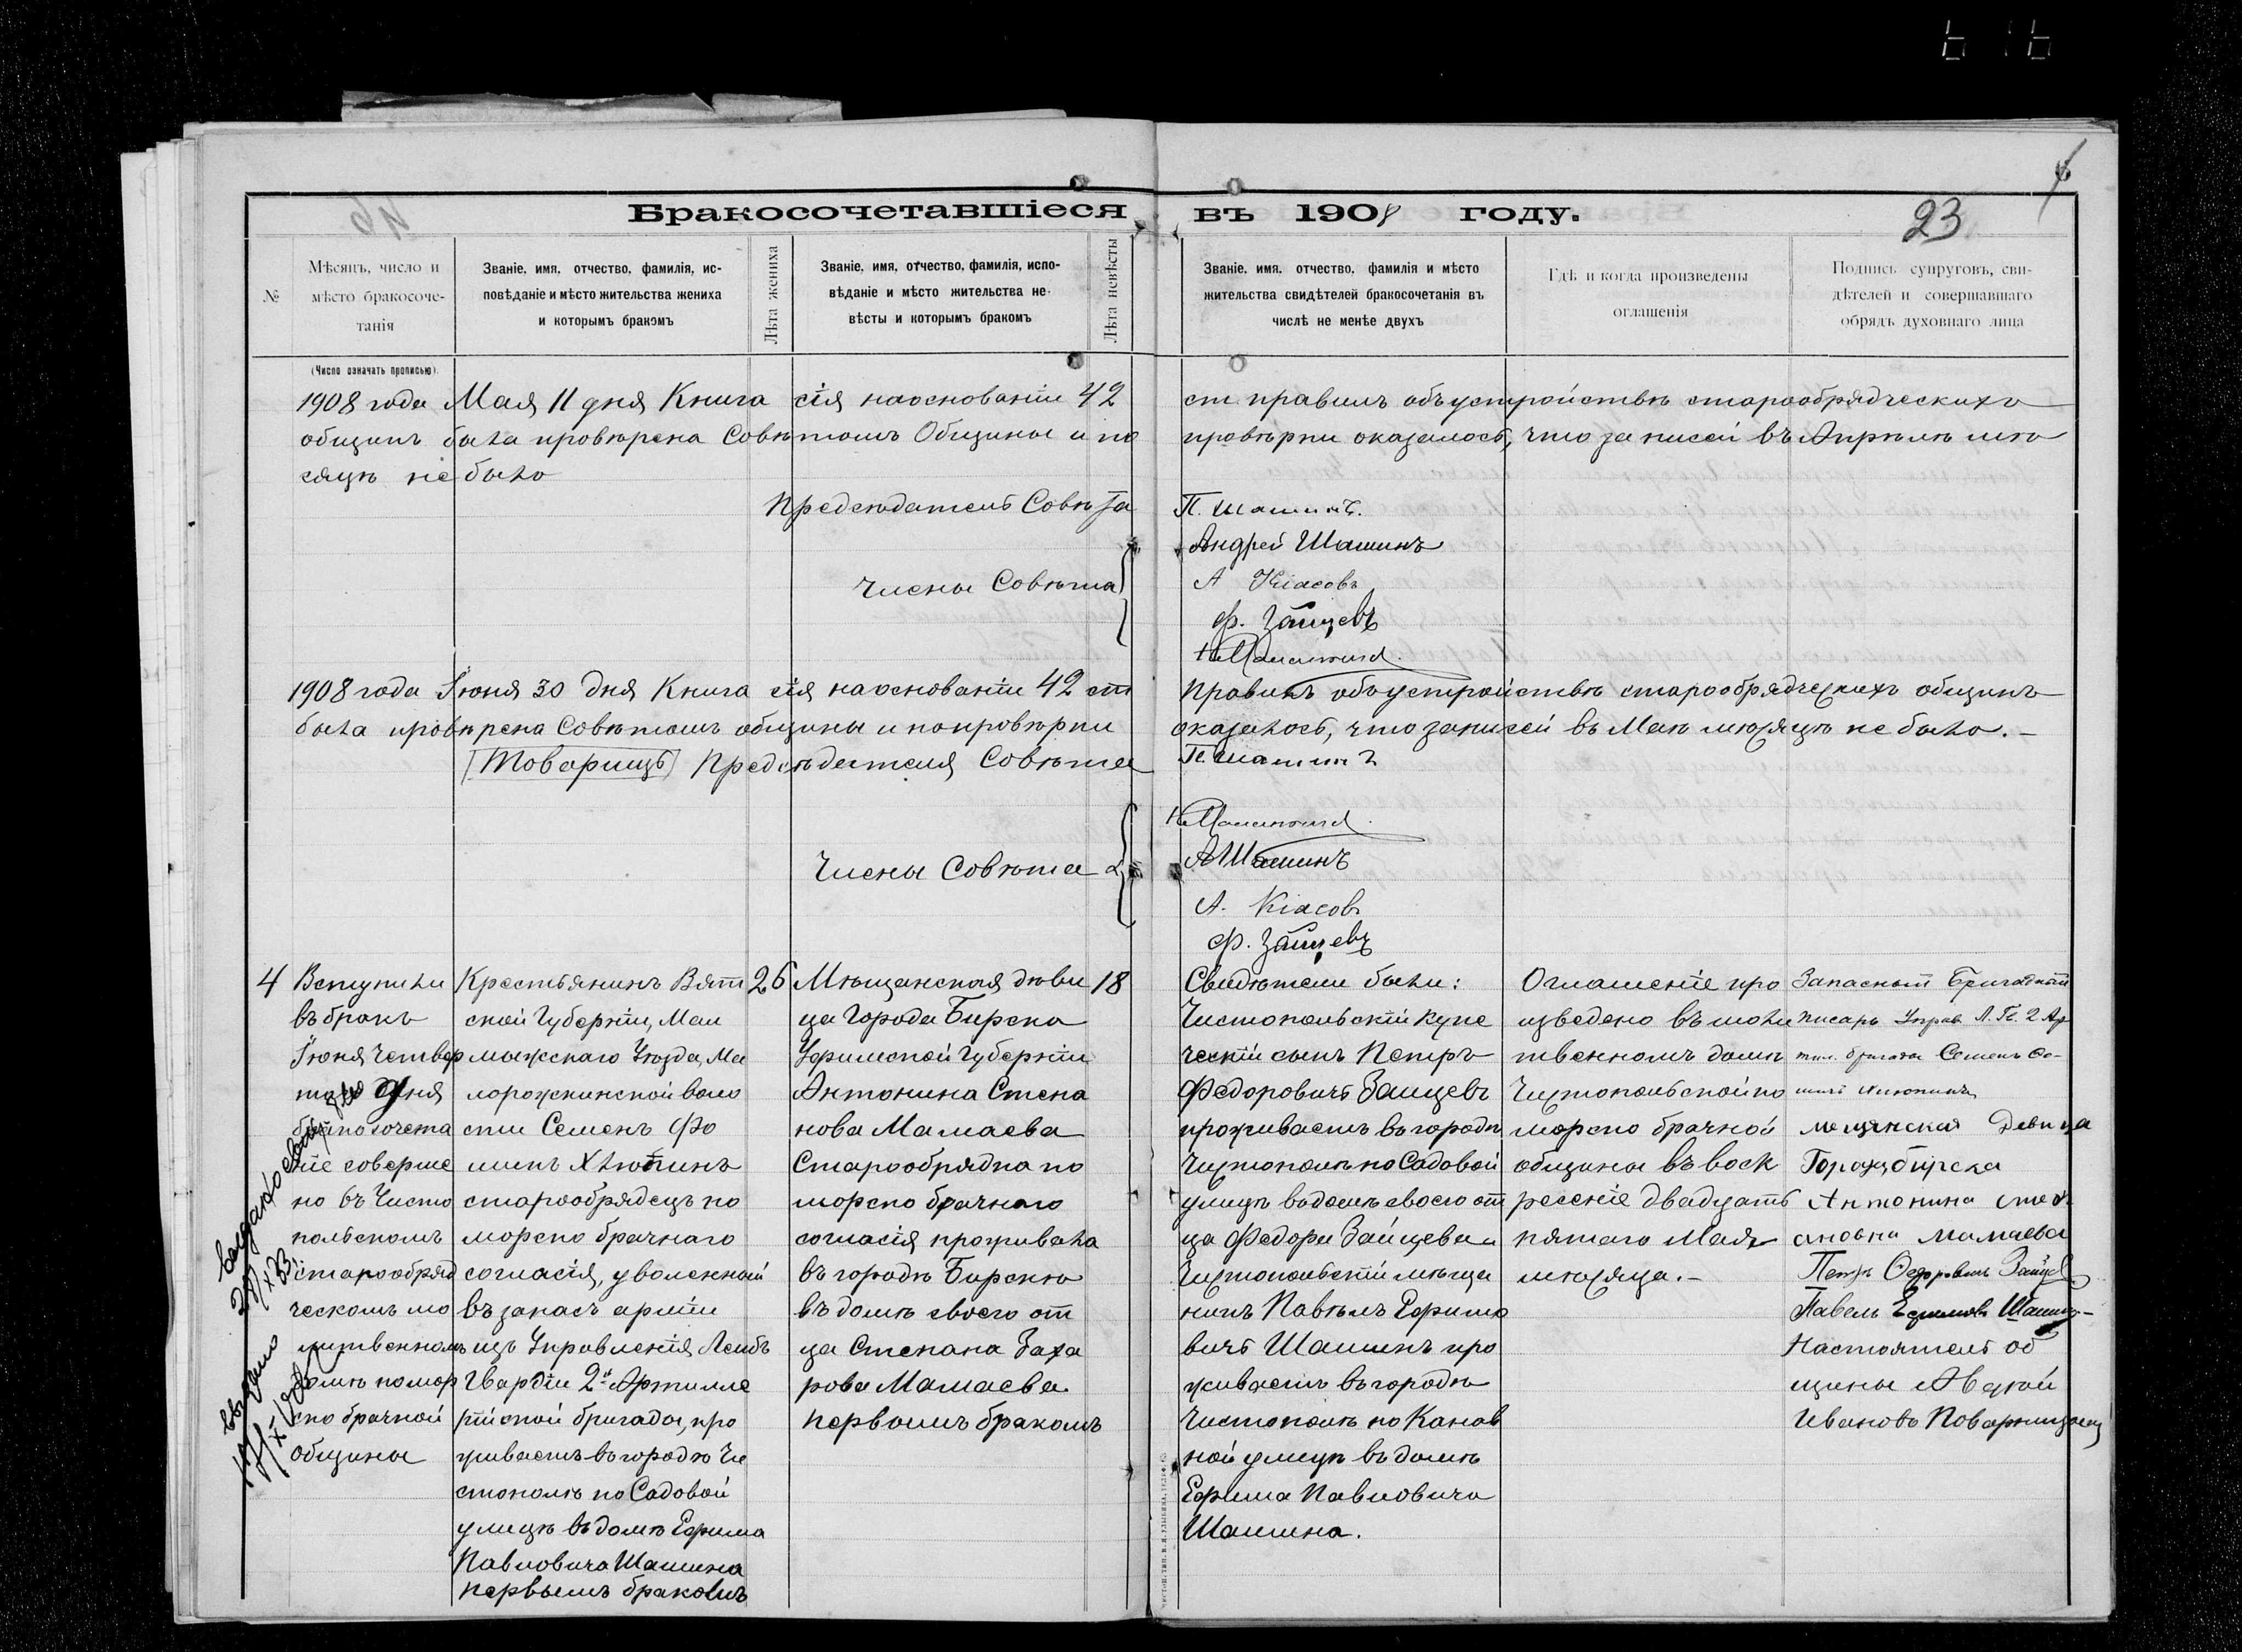 Бракосочетавшіеся въ 1908 году.
23
№
Мѣсяцъ, число и
мѣсто бракосоче-
танія
(Число означать прописью).
Званіе, имя, отчество, фамилія, ис-
повѣданіе и мѣсто жительства жениха
и которымъ бракомъ
Лѣта жениха
Званіе, имя, отчество, фамилія, испо-
вѣданіе и мѣсто жительства не-
вѣсты и которымъ бракомъ
Лѣта невѣсты
Званіе, имя, отчество, фамилія и мѣсто
жительства свидѣтелей бракосочетанія въ
числѣ не менѣе двухъ
Гдѣ и когда произведены
оглашенія
Подпись супруговъ, сви-
дѣтелей и совершавшаго
обрядъ духовнаго лица
1908 года Мая 11 дня Книга сія наоснованіи 42 ст правилъ объустройствѣ старообрядческихъ
общинъ была провѣрена Совѣтомъ Общины и по провѣрки оказалось, что записей въ Апрѣлѣ мѣ
сяцѣ не было
Предсѣдатель Совѣта П. Шашинъ.
Члены Совѣта
Андрей Шашинъ
А Кіасовъ
Ф. Зайцевъ
1908 года Іюня 30 дня Книга сія наоснованіи 42 ст Правилъ объустройствѣ старообрядческихъ общинъ
была провѣрена Совѣтомъ общины и попровѣрки оказалось, что записей въ Маѣ мѣсяцѣ не было.-
Товарищъ Предсѣдателя Совѣта П. Шашинъ
Члены Совѣта
А Шашинъ
А. Кіасовъ
Ф. Зайцевъ
4
Вступили
въ бракъ
Іюня Четвер
таго дня
сочета
ніе соверше
но въ Чисто
польскомъ
старообряд
ческомъ мо
литвенномъ
домѣ помор
ско брачной
общины
Крестьянинъ Вят
ской Губерніи, Мал
мыжскаго Уѣзда, Ма
лорожкинской воло
сти Семенъ Фо
минъ Хлюпинъ
старообрядецъ по
морско брачнаго
согласія, уволенный
въ запасъ арміи
изъ Управленія Лейбъ
Гвардіи 2й Артилле
рійской бригады, про
живаетъ въ городѣ Чи
стополѣ по Садовой
улицѣ въ домѣ Ефима
Павловича Шашина
первымъ бракомъ
26
Мѣщанская дѣви
ца Города Бирска
Уфимской Губерніи
Антонина Степа
нова Мамаева
Старообрядка по
морско брачнаго
согласія проживала
въ городѣ Бирскѣ
въ домѣ своего от
ца Степана Заха
рова Мамаева
первымъ бракомъ
18
Свидѣтели были:
Чистопольскій купе
ческій сынъ Петръ
Федоровичъ Зайцевъ
проживаетъ въ городѣ
Чистополѣ по Садовой
улицѣ въ домѣ своего от
ца Федора Зайцева и
Чистопольскій мѣща
нинъ Павелъ Ефимо
вичъ Шашинъ про
живаетъ въ городѣ
Чистополѣ по Канав
ной улицѣ въ домѣ
Ефима Павловича
Шашина.
Оглашеніе про
изведено въ моли
твенномъ домѣ
Чистопольской по
морско брачной
общины въ воск
ресеніе двадцать
пятаго Мая
мѣсяца.-
Запасный Бригадный
писарь Управ. Л. Гв. 2 Ар
тил. бригады Семенъ Фо-
минъ Хлюпинъ
мещанская Девица
Города Бирска
Антонина Степ
ановна Мамаева
Петръ Федоровичъ Зайцев
Павелъ Ефимовъ Шашинъ
Настоятель об
щины Авдѣй
Ивановъ Поварницынъ
выдано